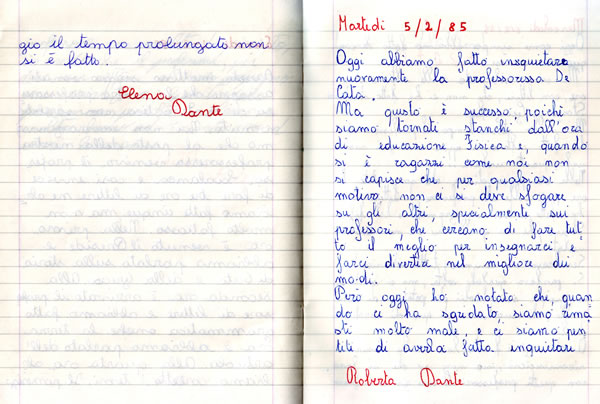 gio il tempo prolungato non
si è fatto.
Elena
Dante
Martedì 5/2/85
Oggi abbiamo fatto inquietare
nuovamente la professoressa De
Cata.
Ma questo è successo, poichè
siamo tornati stanchi dall'ora
di educazione Fisica e, quando
si è ragazzi come noi non
si capisce che per qualsiasi
motivo non ci si deve sfogare
su gli altri, specialmente sui
professori, che cercano di fare tut
to il meglio per insegnarci e
farci divertire nel migliore dei
modi.
Però oggi ho notato che, quan
do ci ha sgridato, siamo rima
sti molto male, e ci siamo pen
titi di averla fatta inquietare
Roberta Dante